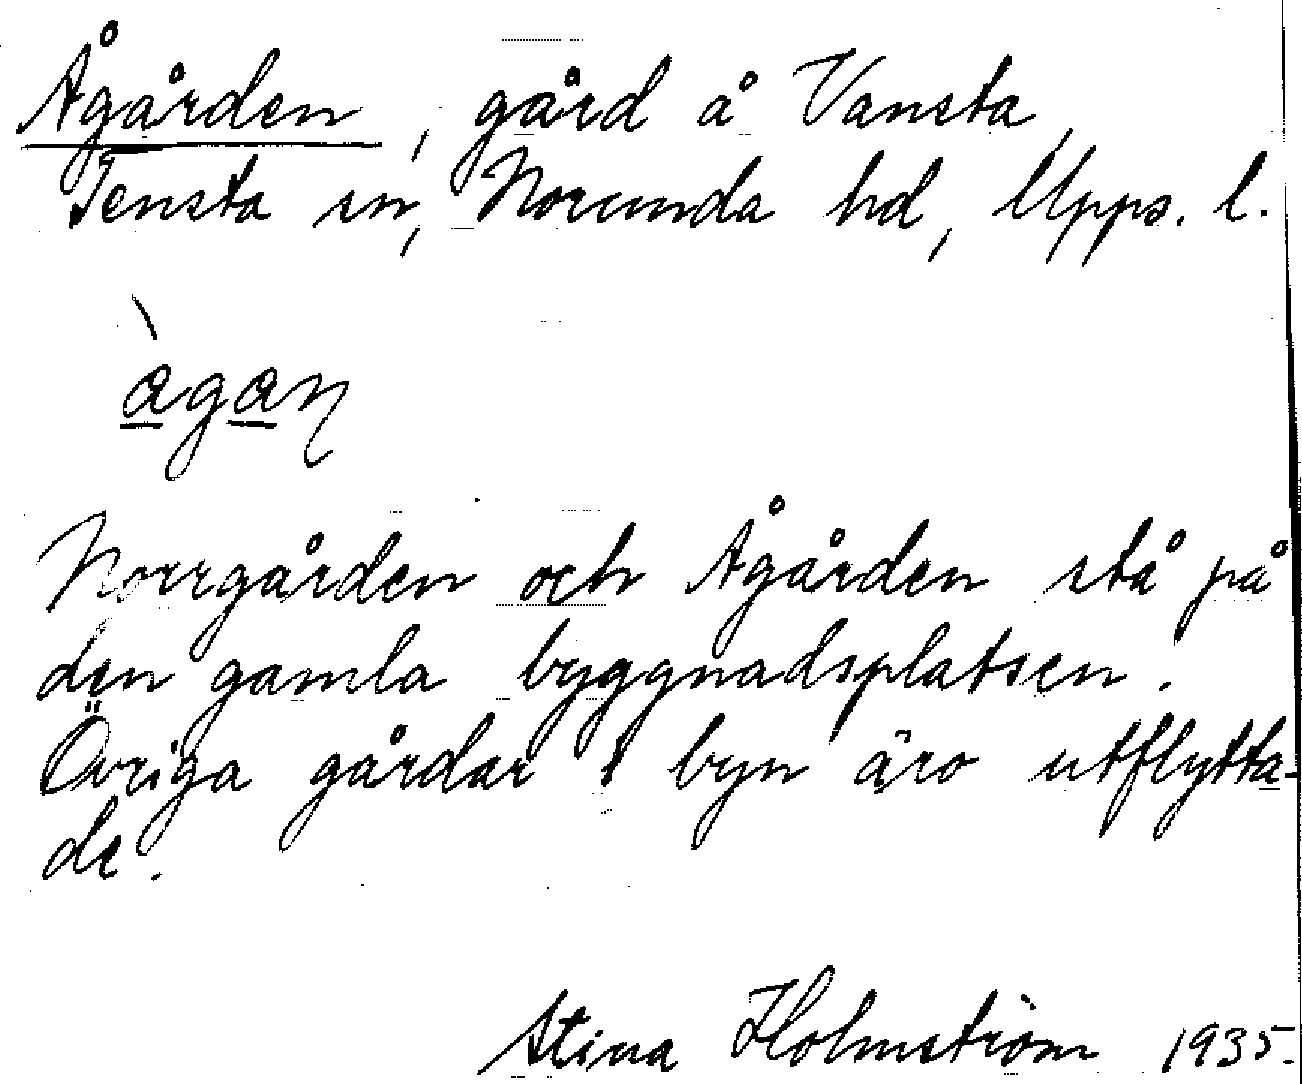 Ågården, gård å Vansta,
Tensta sn, Norunda hd, Upps. l.
àgaɳ
Norrgården och Ågården stå på
den gamla byggnadsplatsen.
Övriga gårdar i byn äro utflytta-
de.
Stina Holmström 1935.